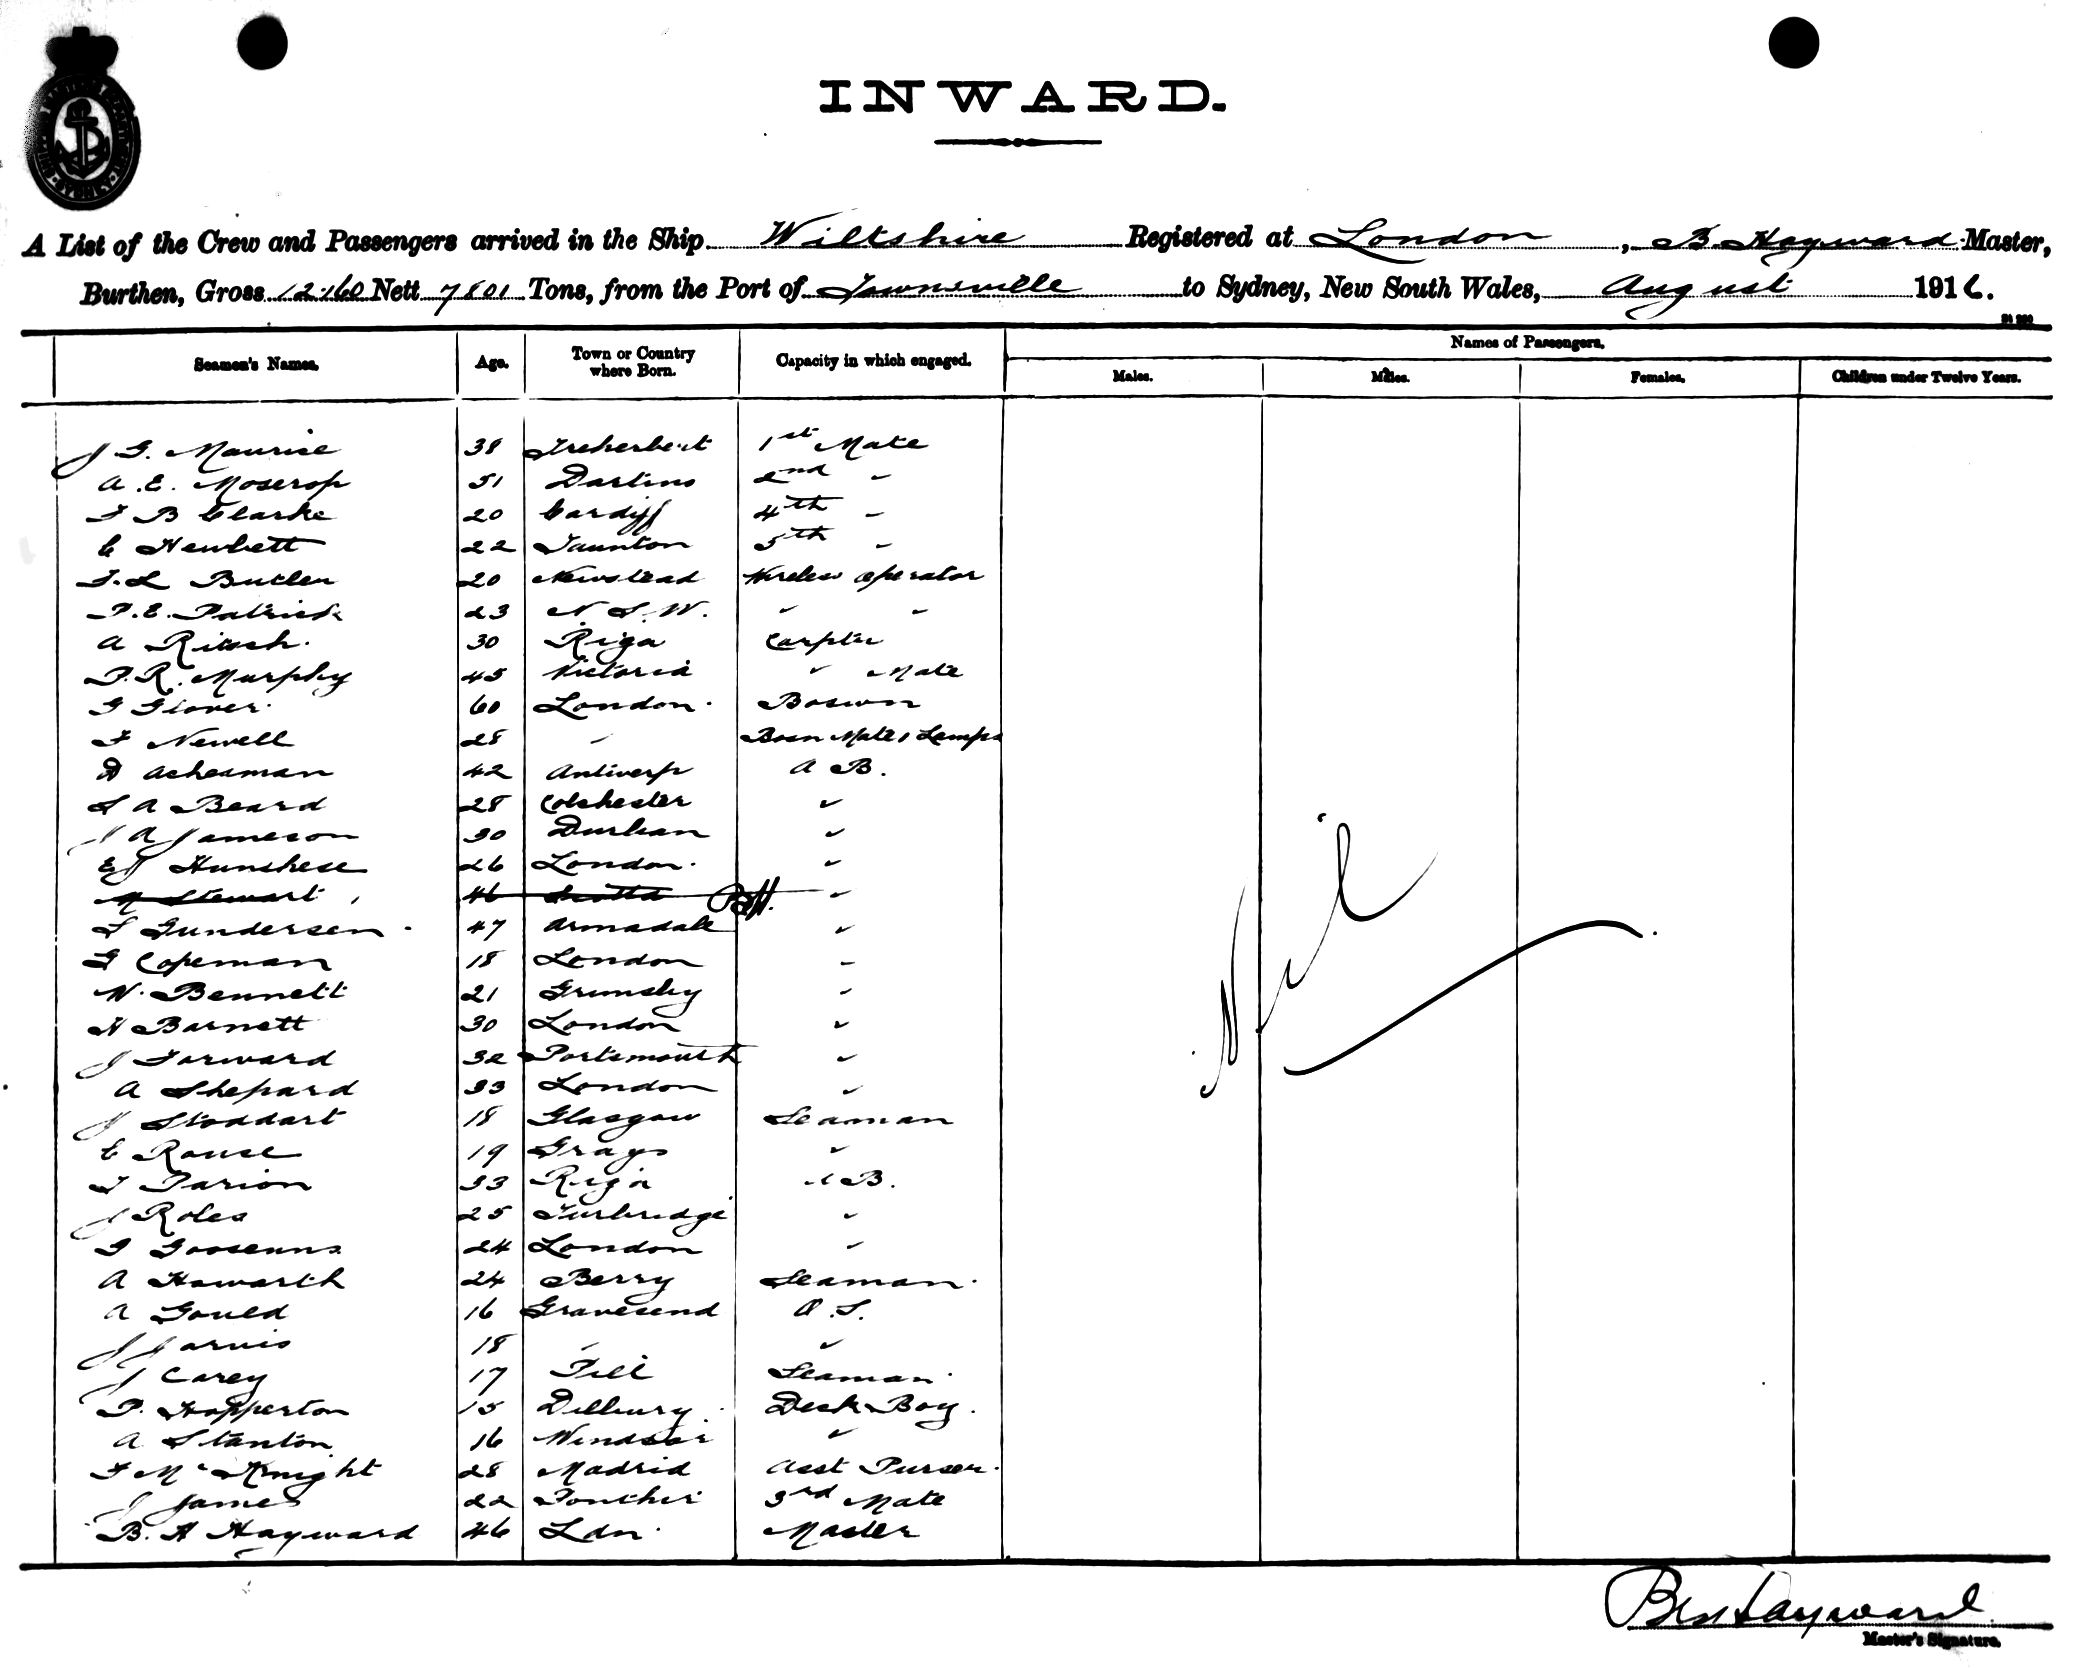 INWARD.
A List of the Crew and Passengers arrived in the Ship Wiltshire Registered at London, B. Hayward Master,
Burthen, Gross 12160 Nett 7801 Tons, from the Port of Townsville to Sydney, New South Wales, August 1916.
Names of Passengers.
Seamen's Names. Age. Town or Country where Born. Capacity in which engaged. Males. Males. Females. Children under Twelve Years.
J G. Maurice 38 Treherbert 1st Mate
A. E. Moscrop 51 2nd "
F B Clarke 20 Cardiff 4th "
C Newbett 22 Taunton 5th "
F. L Butler 20 Newstead Wireless operator
P. E. Patrick 23 N. S. W. " "
A 30 Riga Carptr
P. R. Murphy 45 Victoria " Mate
G Glover 60 London Boswn
F Newell 28 " Bosn Mate & Lamps
A Acheaman 42 Antwerp A B.
S A Beard 28 Colchester "
J A Jameson 30 Durban "
E J 26 London "
M Stewart 46 Scotld BH. "
S Gundersen 47 Armadale "
G Copeman 18 London "
W. Bennett 21 Grimsby "
H Barnett 30 London "
J Forward 32 Portsmouth "
A Shepard 33 London "
J Stoddart 18 Glasgow Seaman
E Rouse 19 Grays "
T Parion 33 Riga A B.
J Roles 25 Turbridge "
G Goosenns 24 London "
A Howarth 24 Berry Seaman.
A Gould 16 Gravesend O. S.
J Jarvis 18 " "
J Carey 17 Pill Seaman
P. Hopperton 15 Deck Boy.
A Stanton 16 Windsor "
F Mc Knight 28 Madrid Asst Purser.
J James 22 3rd Mate
B. H Hayward 46 Ldn. Master
Nil
B H Hayward
Master's Signature.